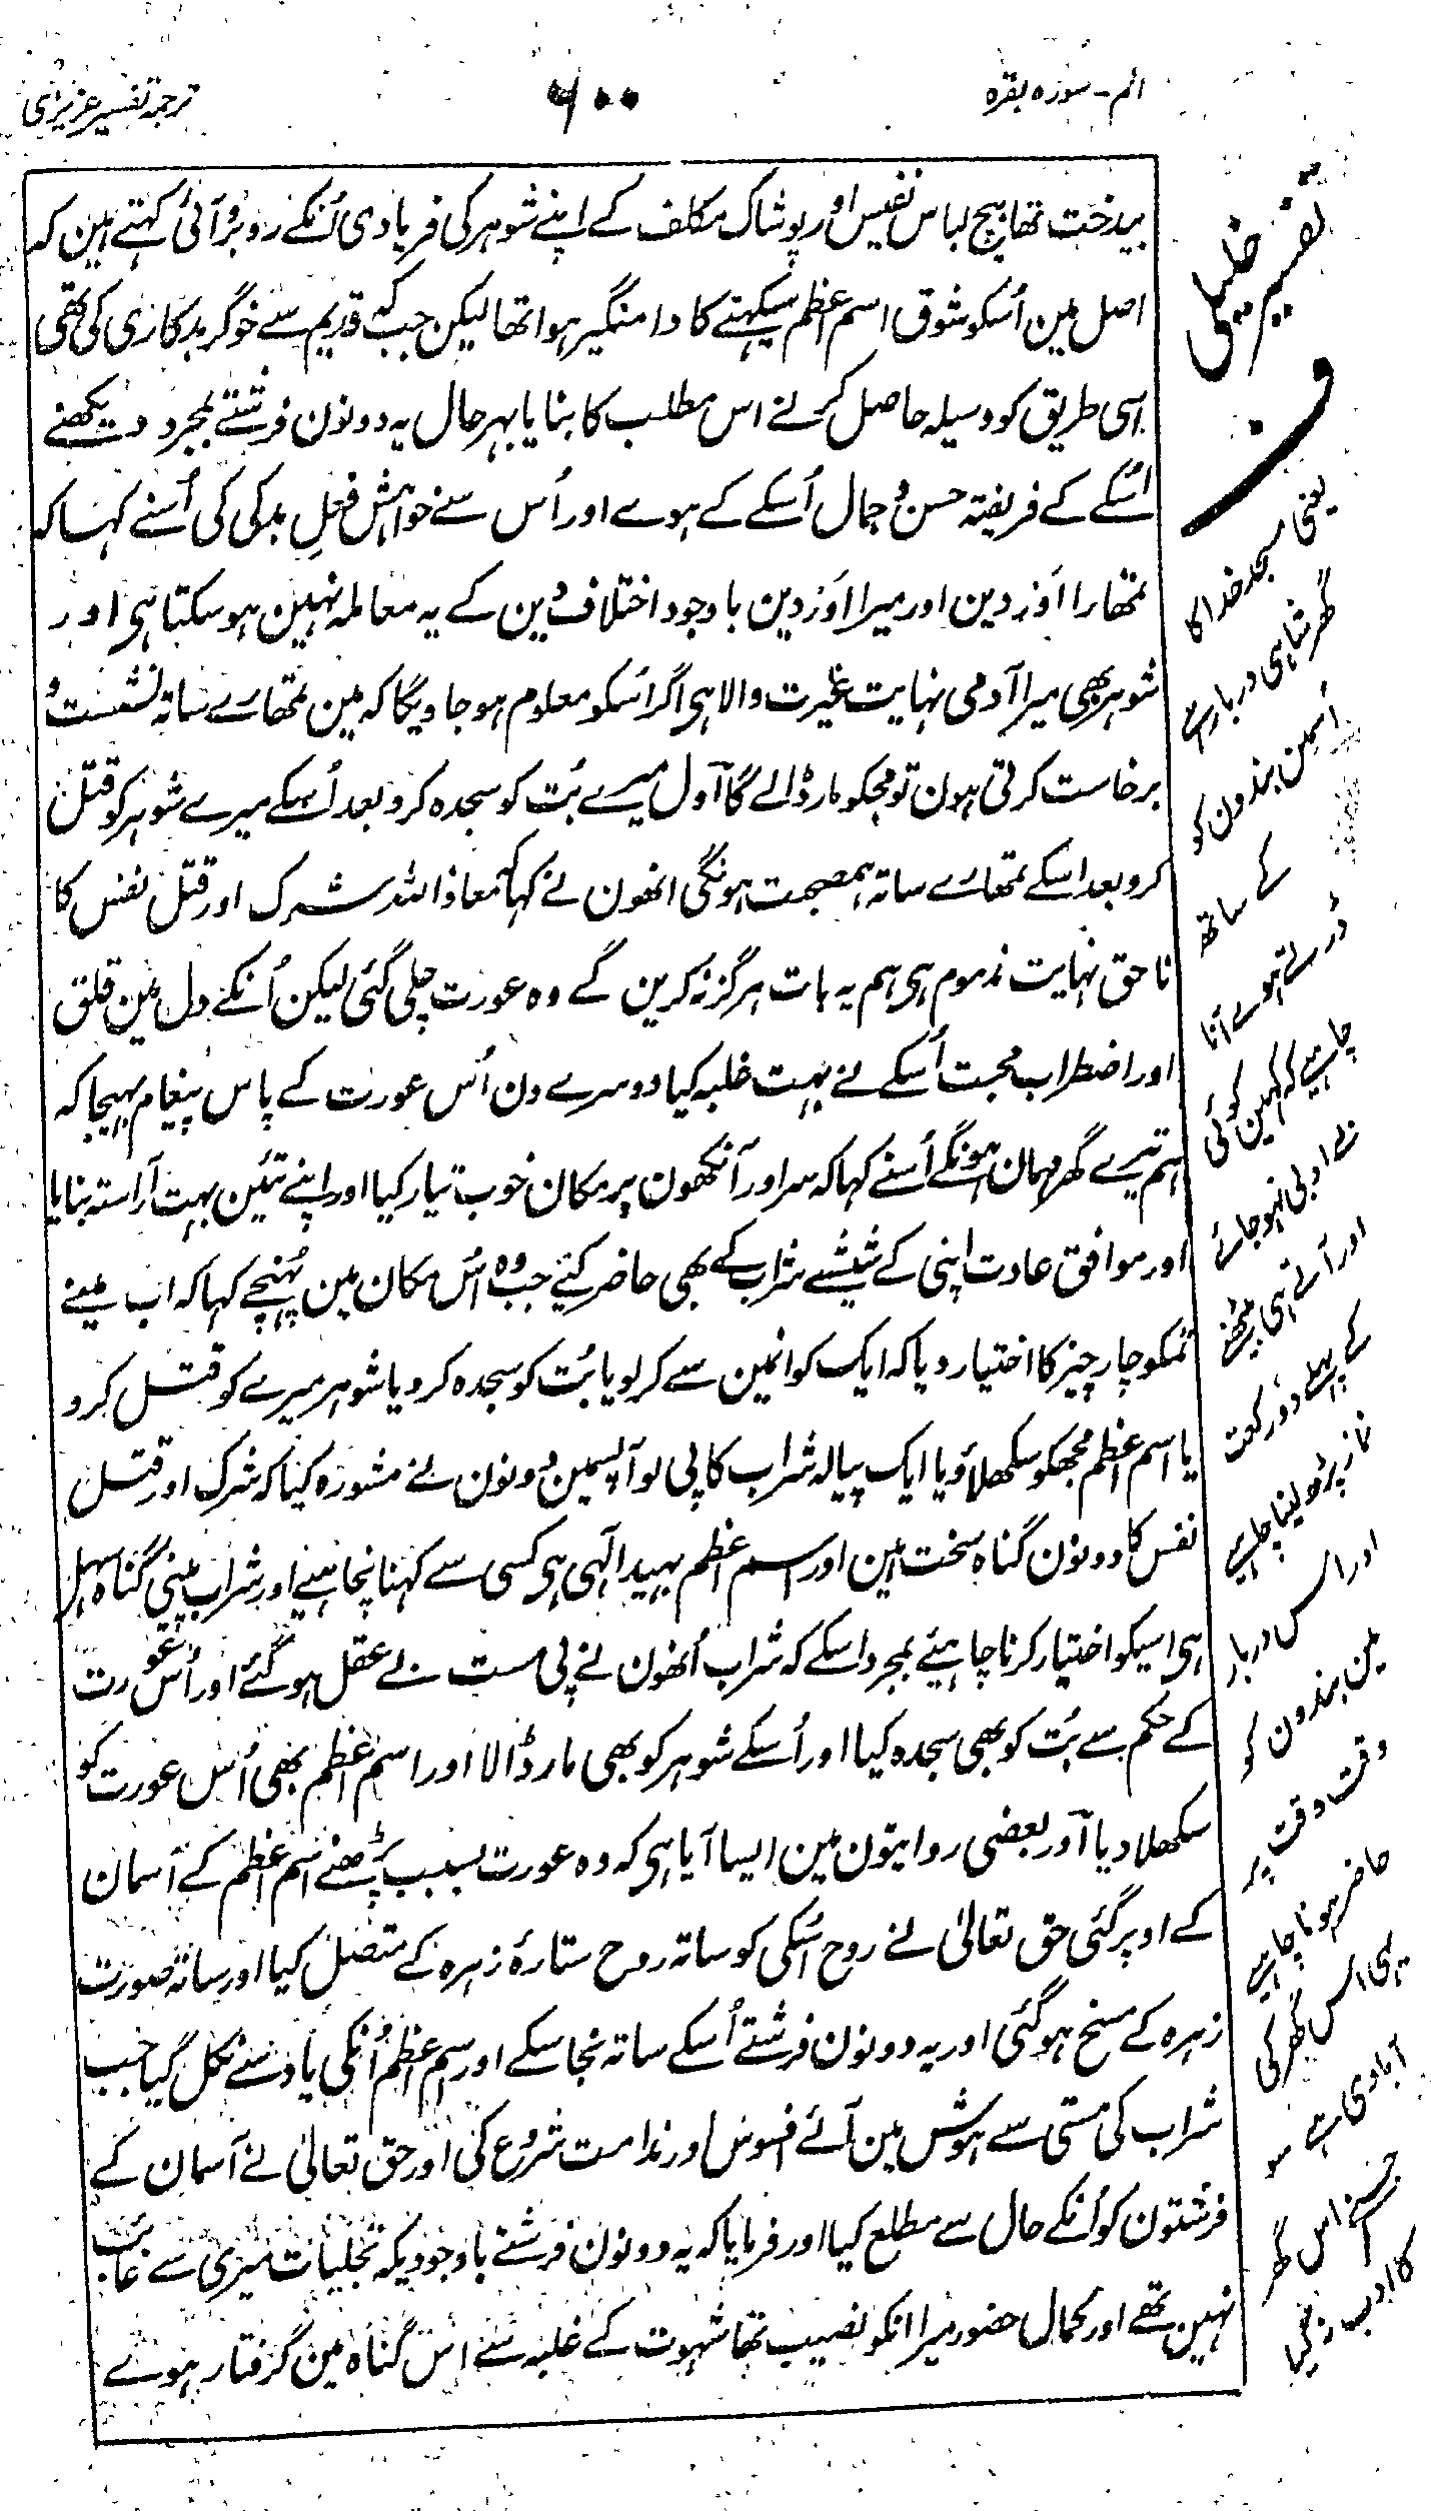 الم - سورہ بقرہ
۶۰۰
ترجمہ تفسیر عزیزی
بیدخت تھا بیچ لباس نفیس اور پوشاک مکلف کے اپنے شوہر کی فریادی اُنکے روبرو آئی کہتے ہین کہ
اصل مین اُسکو شوق اسم اعظم سیکہنے کا دامنگیر ہوا تھا لیکن جب کہ قدیم سے خوگر بدکاری کی تھی
اسی طریق کو وسیلہ حاصل کرنے اس مطلب کا بنایا بہرحال یہ دونون فرشتے بمجرد دیکھنے
اُسکے کے فریفتہ حسن و جمال اُسکے کے ہوے اور اُس سے خواہش فعل بد کی کی اُسنے کہا کہ
تمھارا اَور دین اور میرا اَور دین باوجود اختلاف دین کے یہ معاملہ نہین ہو سکتا ہی اور
شوہر بھی میرا آدمی نہایت غیرت والا ہی اگر اُسکو معلوم ہو جاویگا کہ مین تمھارے ساتہ نشست و
برخاست کرتی ہون تو مجکو مار ڈالے گا آول میرے بُت کو سجدہ کرو بعد اُسکے میرے شوہر کو قتل
کرو بعد اسکے تمھارے ساتہ ہمصحبت ہونگی انھون نے کہا کہ معاذ اللہ شرک اور قتل نفس کا
ناحق نہایت مذموم ہی ہم یہ بات ہرگز نہ کرین گے وہ عورت چلی گئی لیکن اُنکے دل مین قلق
اور اضطراب محبت اُسکے نے بہت غلبہ کیا دوسرے دن اُس عورت کے پاس پیغام بہیجا کہ
ہم تیرے گھر مہمان ہونگے اُسنے کہا کہ سر اور آنکھون پر مکان خوب تیار کیا اور اپنے تئین بہت آراستہ بنایا
اور موافق عادت اپنی کے شیشے شراب کے بھی حاضر کیے جب وہ اُس مکان مین پُہنچے کہا کہ اب مینے
تمکو چار چیز کا اختیار دیا کہ ایک کو انمین سے کر لو یا بُت کو سجدہ کرو یا شوہر میرے کو قتل کرو
یا اسم اعظم مجھکو سکھلاؤ یا ایک پیالہ شراب کا پی لو آپسمین دونون نے مشورہ کیا کہ شرک اور قتل
نفس کا دونون گناہ سخت ہین اور اسم اعظم بہید الٓہی ہی کسی سے کہنا نچاہئے اور شراب پینی گناہ سہل
ہی اسیکو اختیار کرنا چاہیئے بمجرد اسکے کہ شراب اُنھون نے پی مست بے عقل ہو گئے اور اُس عورت
کے حکم سے بُت کو بھی سجدہ کیا اور اُسکے شوہر کو بھی مار ڈالا اور اسم اعظم بھی اُس عورت کو
سکھلا دیا اور بعضی روایتون مین ایسا آیا ہی کہ وہ عورت بسبب پڑھنے اسم اعظم کے آسمان
کے اوپر گئی حق تعالیٰ نے روح اُسکی کو ساتہ روح ستارۂ زہرہ کے متصل کیا اور ساتہ صورت
زہرہ کے مسخ ہو گئی اور یہ دونون فرشتے اُسکے ساتہ نجا سکے اور اسم اعظم اُنکی یاد سے نکل گیا جب
شراب کی مستی سے ہوش مین آئے افسوس اور ندامت شروع کی اور حق تعالیٰ نے آسمان کے
فرشتون کو اُنکے حال سے مطلع کیا اور فرمایا کہ یہ دونون فرشتے باوجودیکہ تجلیات میری سے غائب
نہین تھے اور کمال حضور میرا انکو نصیب تھا شہوت کے غلبہ سے اس گناہ مین گرفتار ہوے
تفسیر خلیلی
ف
یعنی مسجد خدا کا
گھر شاہی دربار ہے
اسمین بندون کو
کے ساتھ
ڈرتے ہوے آنا
چاہیے کہ کہین کوئی
بے ادبی نہو جائے
اور آتے ہی بیٹھنے
کے پہلے دو رکعت
نماز پڑھ لینا چاہیے
اور اس دربار
مین بندون کو
وقت وقت پر
حاضر ہونا چاہیے
یہی اس گھر کی
آبادی ہے سو
جسنے اس گھر
کا ادب نکیا